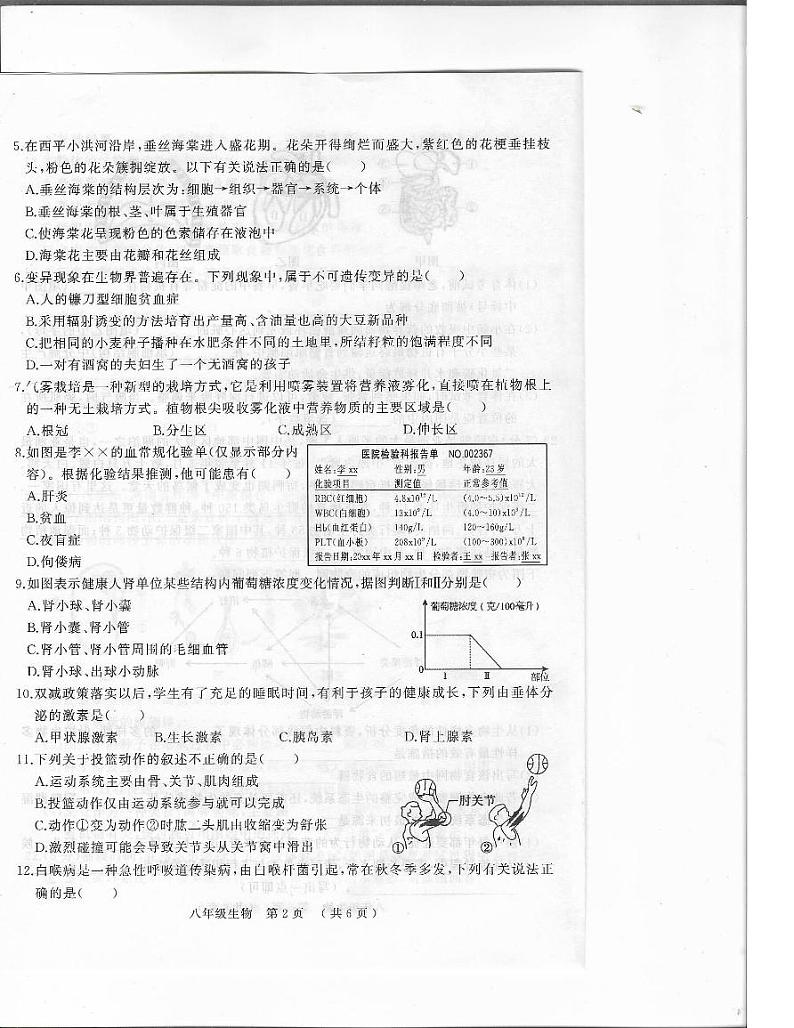 5.在西平小洪河沿岸,垂丝海棠进入盛花期。花朵开得绚烂而盛大,紫红色的花梗垂挂枝
头,粉色的花朵簇拥绽放。以下有关说法正确的是(　　)
A.垂丝海棠的结构层次为:细胞→组织→器官→系统→个体
B.垂丝海棠的根、茎、叶属于生殖器官
C.使海棠花呈现粉色的色素储存在液泡中
D.海棠花主要由花瓣和花丝组成
6.变异现象在生物界普遍存在。下列现象中,属于不可遗传变异的是(　　)
A.人的镰刀型细胞贫血症
B.采用辐射诱变的方法培育出产量高、含油量也高的大豆新品种
C.把相同的小麦种子播种在水肥条件不同的土地里,所结籽粒的饱满程度不同
D.一对有酒窝的夫妇生了一个无酒窝的孩子
7.气雾栽培是一种新型的栽培方式,它是利用喷雾装置将营养液雾化,直接喷在植物根上
的一种无土栽培方式。植物根尖吸收雾化液中营养物质的主要区域是(　　)
A.根冠　B.分生区　C.成熟区　D.伸长区
8.如图是李××的血常规化验单(仅显示部分内
容)。根据化验结果推测,他可能患有(　　)
A.肝炎
B.贫血
C.夜盲症
D.佝偻病
医院检验科报告单　NO.002367
姓名:李 xx　性别:男　年龄:23岁
化验项目　测定值　正常参考值
RBC(红细胞)　4.8x10¹²/L　(4.0~5.5)x10¹²/L
WBC(白细胞)　13x10⁹/L　(4.0~10)x10⁹/L
Hb(血红蛋白)　140g/L　120~160g/L
PLT(血小板)　208x10⁹/L　(100~300)x10⁹/L
报告日期:20xx年 xx月 xx日　检验者:王 xx　报告者:张 xx
9.如图表示健康人肾单位某些结构内葡萄糖浓度变化情况,据图判断Ⅰ和Ⅱ分别是(　　)
A.肾小球、肾小囊
B.肾小囊、肾小管
C.肾小管、肾小管周围的毛细血管
D.肾小球、出球小动脉
葡萄糖浓度(克/100毫升)
0.1
0
Ⅰ　Ⅱ　部位
10.双减政策落实以后,学生有了充足的睡眠时间,有利于孩子的健康成长,下列由垂体分
泌的激素是(　　)
A.甲状腺激素　B.生长激素　C.胰岛素　D.肾上腺素
11.下列关于投篮动作的叙述不正确的是(　　)
A.运动系统主要由骨、关节、肌肉组成
B.投篮动作仅由运动系统参与就可以完成
C.动作①变为动作②时肱二头肌由收缩变为舒张
D.激烈碰撞可能会导致关节头从关节窝中滑出
肘关节
①　②
12.白喉病是一种急性呼吸道传染病,由白喉杆菌引起,常在秋冬季多发,下列有关说法正
确的是(　　)
八年级生物　第2页　(共6页)